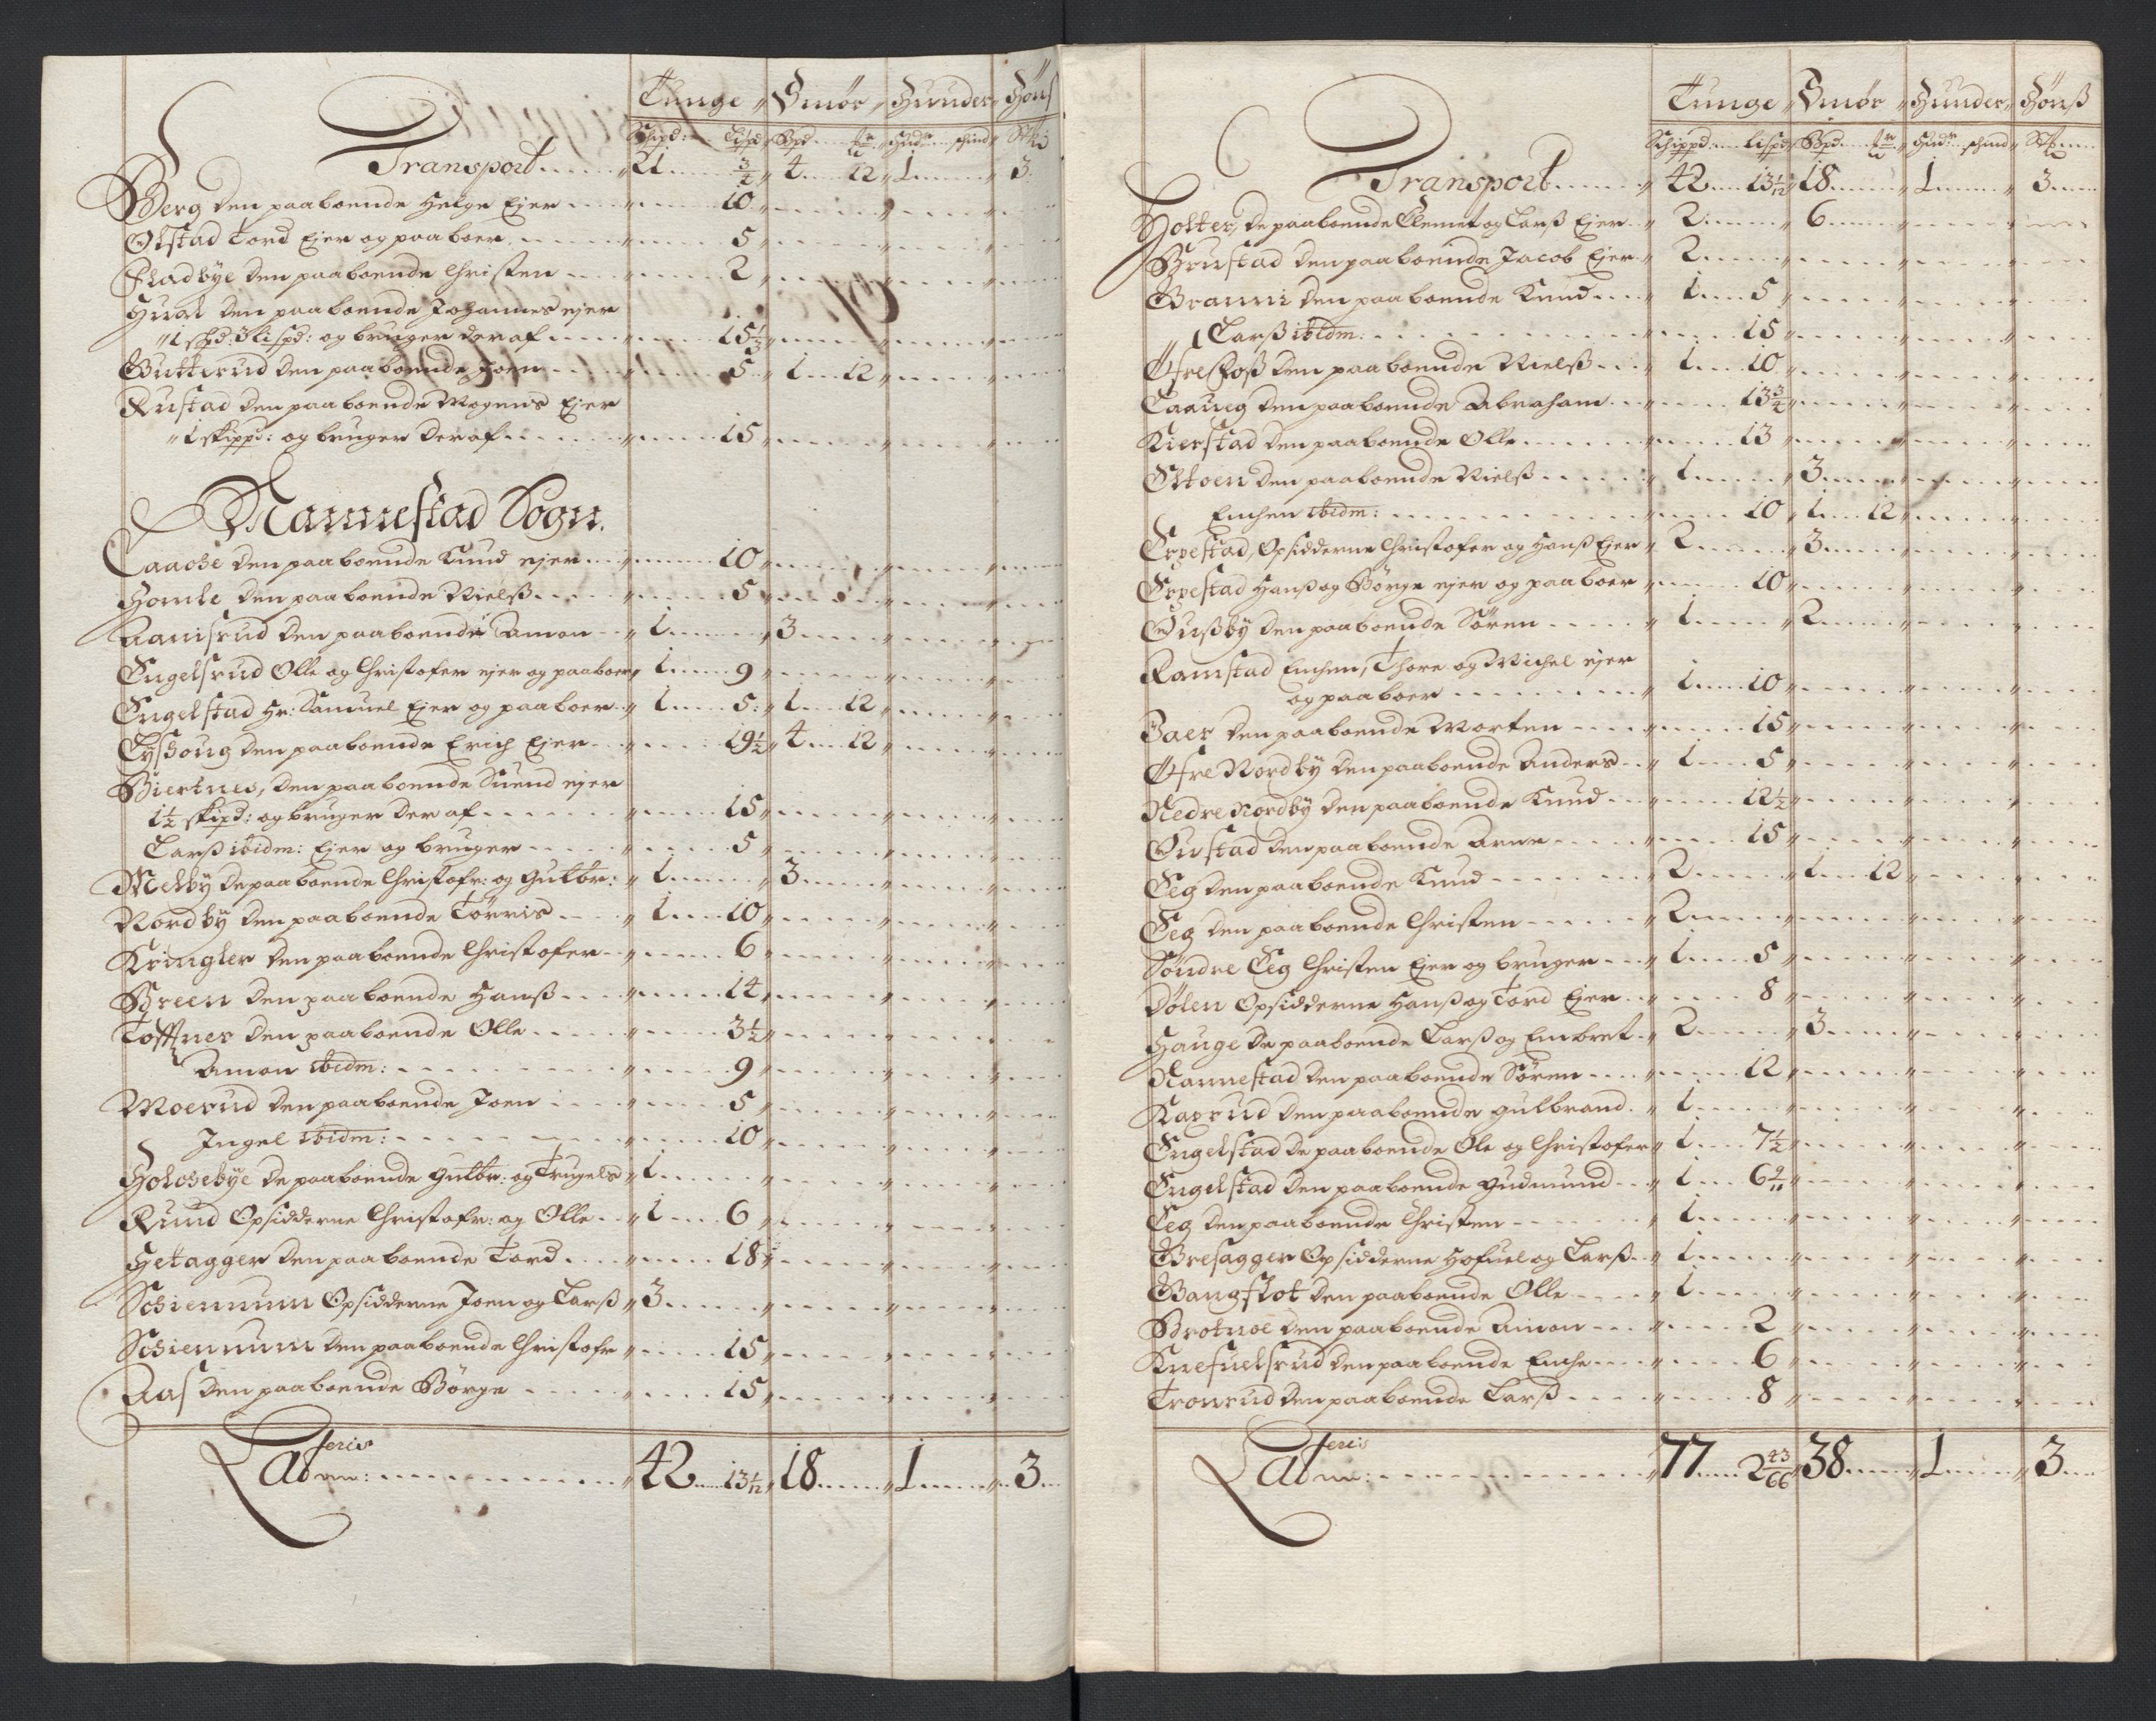 Tunge " Smør " Huuder " Höns
Schipd: Lispd Bpd Hud schind Stk
Transport 21 3/4 4 12 1 3
Berg den paaboende Helge Ejer 10
Olstad Tord Ejer og paaboer 5
Fladbye den paaboende Christen 2
Hual den paaboende Johannes ejer
"1 spd. 3 Lispd: og bruger deraf 15 1/3
Gutterud den paaboende Joen 5 1 12
Rustad den paaboende Mogens Ejer
"1 skippd: og bruger deraf 15
Nannestad Sogn.
Laache den paaboende Knud ejer 10
Homle den paaboende Nielß 5
Aanisrud den paaboende Amon 1 3
Engelsrud Olle og Christofer ejer og paaboer 1 9
Engelstad Hr: Samuel Ejer og paaboer 1 5 1 12
Lyßoug den paaboende Erich Ejer 19 1/2 4 12
Biertnes, den paaboende Suend ejer
1 1/2 skipd: og bruger deraf 15
Larß ibidm: Ejer og bruger 5
Melby de paaboende Christofr: og Gulbr: 1 3
Nordby den paaboende Törris 1 10
Kringler den paaboende Christofer 6
Breen den paaboende Hanß 14
Toffner den paaboende Olle 3 1/2
Amon ibidm: 9
Moerud den paaboende Joen 5
Ingel ibidm: 10
Holchebye de paaboende Gulbr: og Trugels 1
Ruud Opsidderne Christofr: og Olle 1 6
Hetagger den paaboende Tord 18
Schiennum Opsidderne Joen og Larß 3
Schiennum den paaboende Christofr 15
Aas den paaboende Börge 15
Lateris 42 13 1/12 18 1 3
Tunge " Smör " Huuder " Hönß
Schippd: Lispd Bpd Hud: schind Stk
Transport 42 13 1/12 18 1 3
Holter, de paaboende Clemet og Larß Ejer 2 6
Brustad den paaboende Jacob Ejer 2
Branni den paaboende Knud 1 5
Larß ibidm: 15
Öfre Foß den paaboende Nielß 1 10
Laaueg den paaboende Abraham 13 3/4
Kierstad den paaboende Olle 13
Eltoen den paaboende Nielß 1 3
Enchen ibidm: 10 1 12
Erpestad, Opsidderne Christofer og Hanß Ejer 2 3
Erpestad Hanß og Börge ejer og paaboer 10
Oußby den paaboende Sören 1 2
Ramstad Enchen, Thore og Michel ejer
og paaboer 1 10
Baer den paaboende Morten 15
Öfre Nordby den paaboende Anders 1 5
Nedre Nordby den paaboende Knud 12 1/2
Oustad den paaboende Arne 15
Eeg den paaboende Knud 2 1 12
Eeg den paaboende Christen 2
Söndre Eeg Christen Ejer og bruger 1 5
Dölen Opsidderne Hanß og Tord Ejer 8
Hauge de paaboende Larß og Embret 2 3
Nannestad den paaboende Sören 12
Kaxrud den paaboende gulbrand 1
Engelstad de paaboende Ole og Christofer 1 7 1/2
Engelstad den paaboende gudmund 1 6 9/11
Eeg den paaboende Christen 1
Gresagger Opsidderne Hofuel og Larß 1
Bangslot den paaboende Olle 1
Brotnoe den paaboende Amon 2
Knefuelsrud den paaboende Enche 6
Tronrud den paaboende Larß 8
Lateris 77 2 43/66 38 1 3